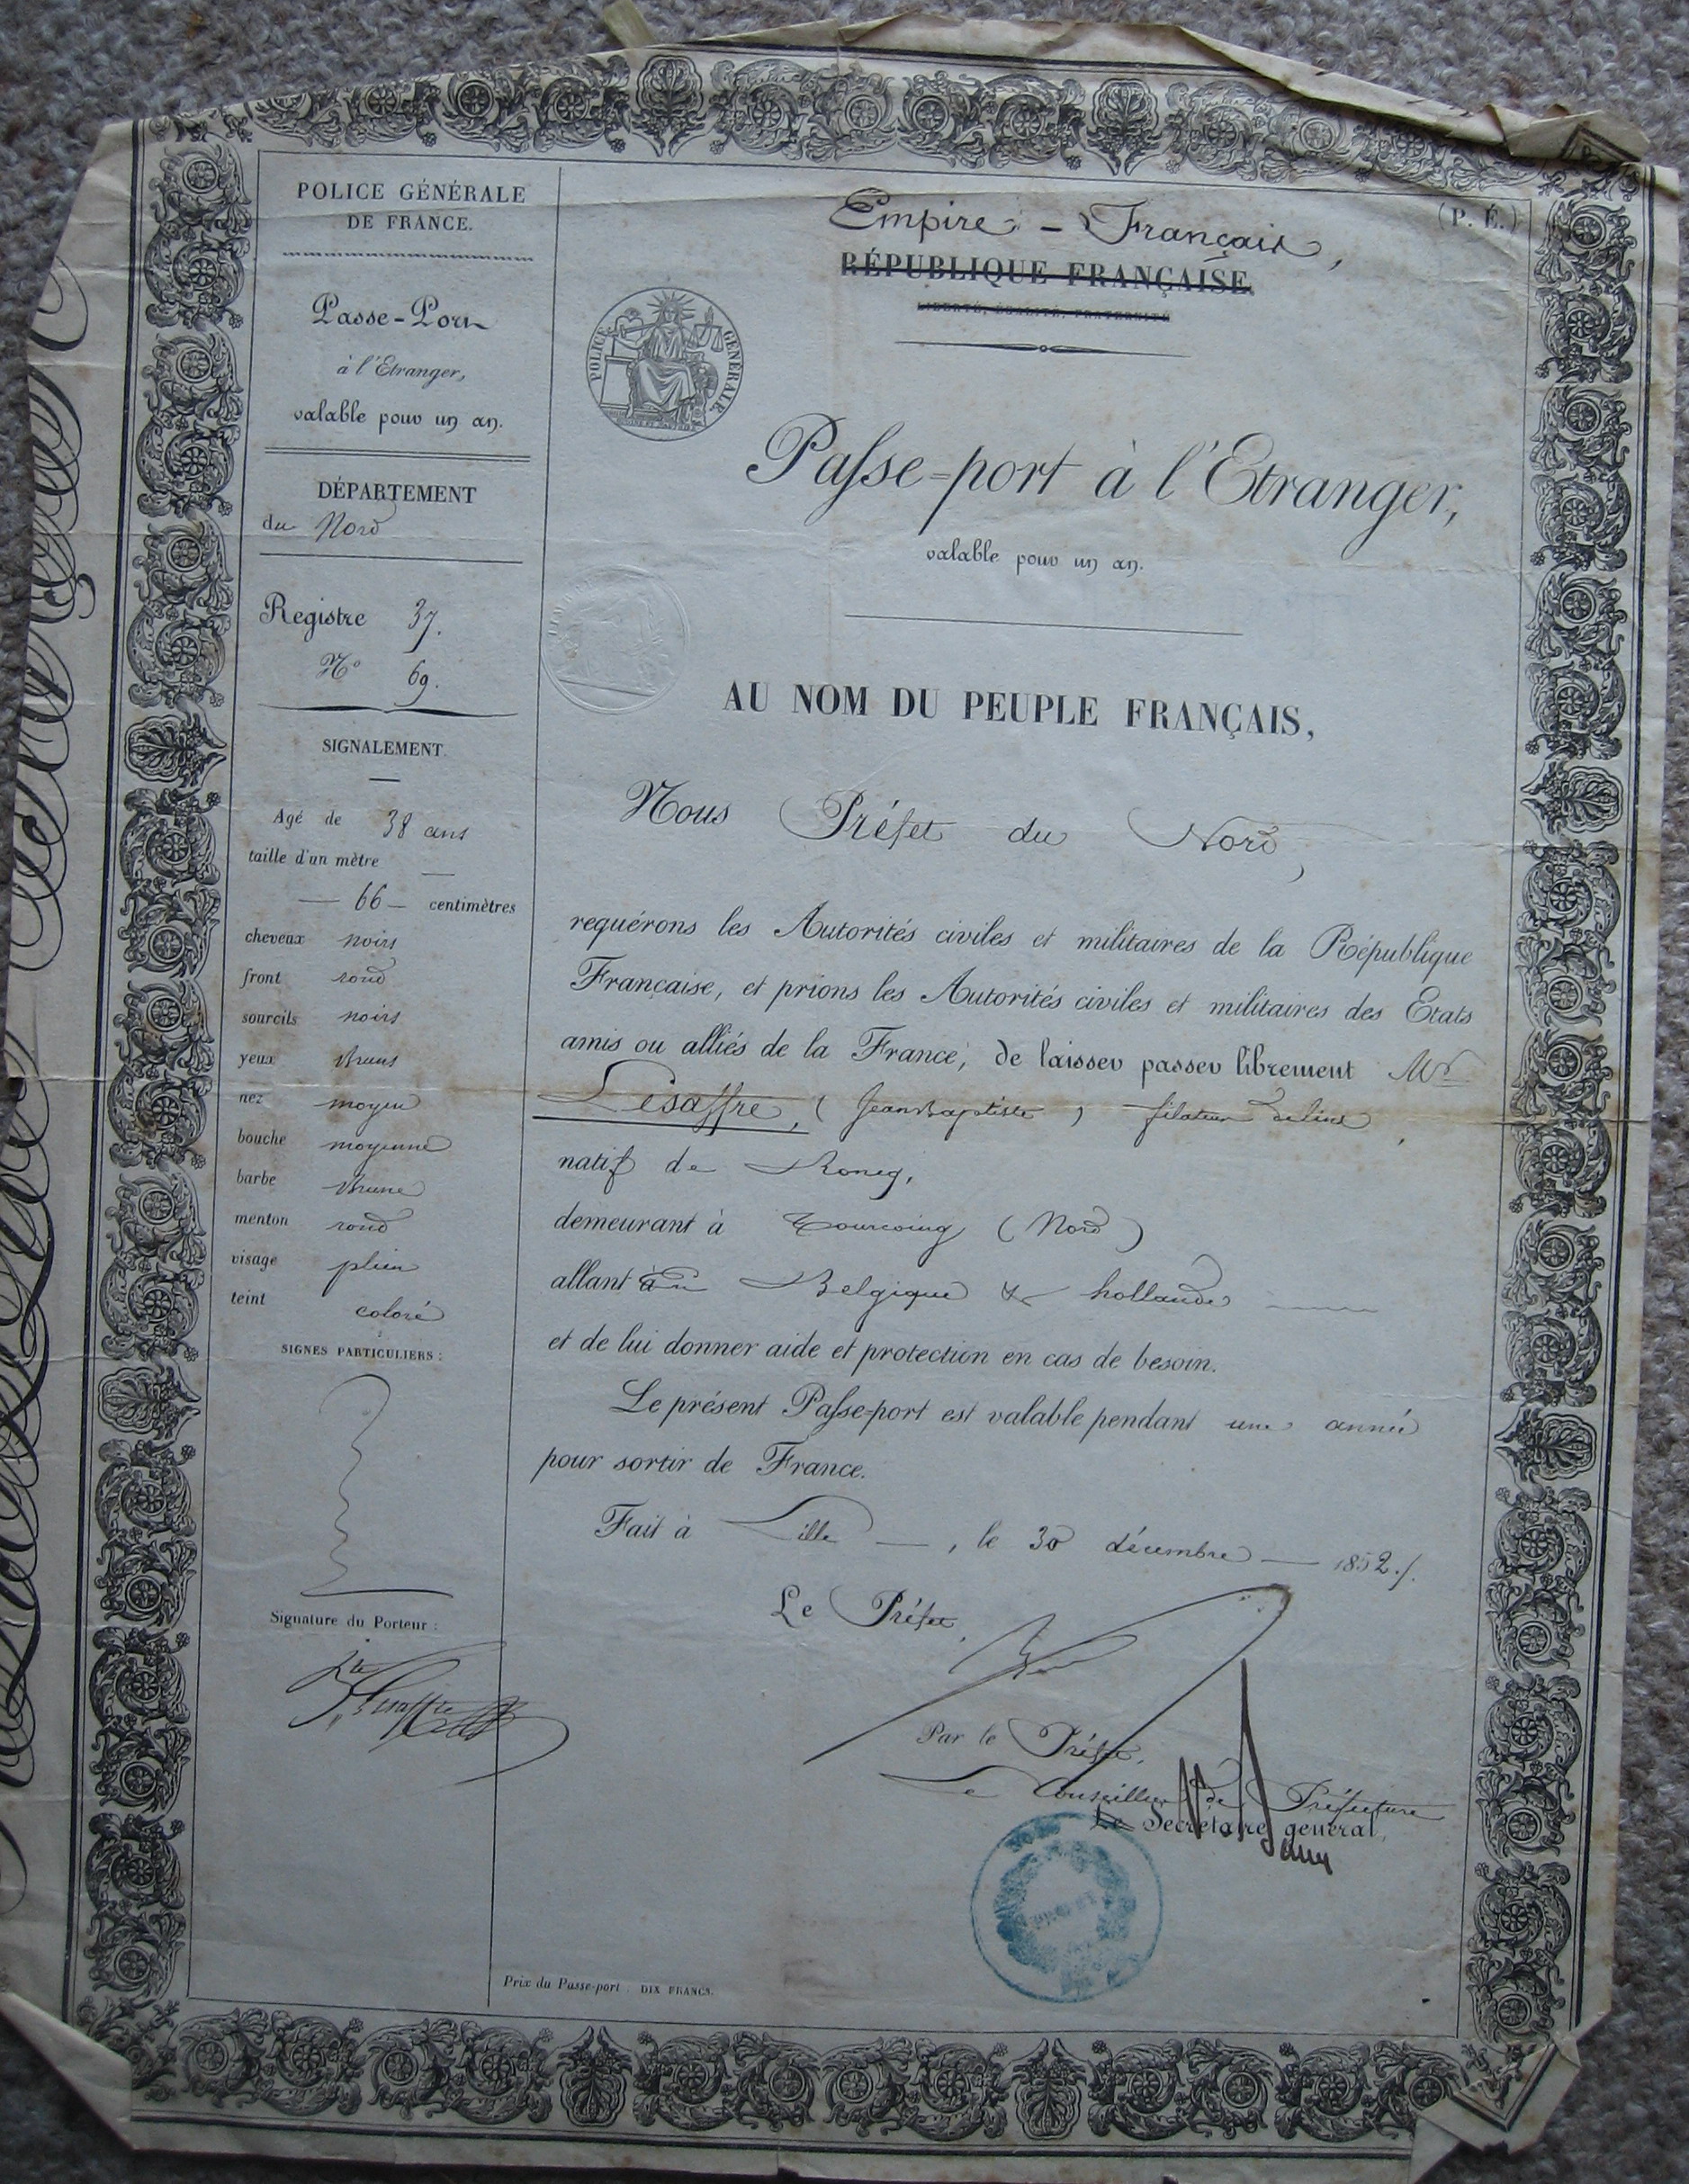 POLICE GÉNÉRALE
DE FRANCE.
Passe-Port
à l'Etranger,
valable pour un an.
DÉPARTEMENT
du Nord
Registre 37.
N° 69.
SIGNALEMENT.
Agé de 38 ans
taille d'un mètre
66 centimètres
cheveux noirs
front rond
sourcils noirs
yeux bruns
nez moyen
bouche moyenne
barbe brune
menton rond
visage plein
teint coloré
SIGNES PARTICULIERS :
Signature du Porteur :
Lesaffre
(P. É.)
Empire - Français,
RÉPUBLIQUE FRANÇAISE.
LIBERTÉ, ÉGALITÉ, FRATERNITÉ
POLICE GÉNÉRALE.
Passe-port à l'Etranger,
valable pour un an.
AU NOM DU PEUPLE FRANÇAIS,
Nous Préfet du Nord,
requérons les Autorités civiles et militaires de la République
Française, et prions les Autorités civiles et militaires des Etats
amis ou alliés de la France, de laisser passer librement Mr
Lesaffre, (Jean Baptiste) filateur de lin,
natif de Roncq,
demeurant à Tourcoing (Nord)
allant en Belgique & hollande
et de lui donner aide et protection en cas de besoin.
Le présent Passe-port est valable pendant une année
pour sortir de France.
Fait à Lille, le 30 décembre 1852./.
Le Préfet,
Par le Préfet,
Le Conseiller de Préfecture
Le Secrétaire général,
Prix du Passe-port : DIX FRANCS.